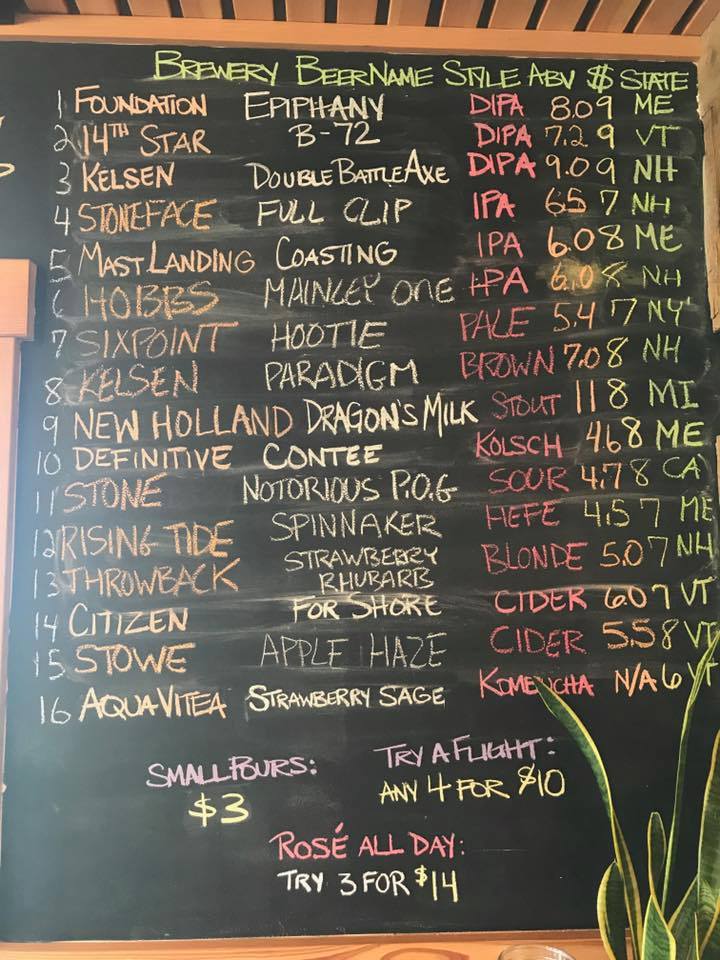 BREWERY BEER NAME STYLE ABV $ STATE
1 FOUNDATION EPIPHANY DIPA 8.0 9 ME
2 14TH STAR B-72 DIPA 7.2 9 VT
3 KELSEN DOUBLE BATTLE AXE DIPA 9.0 9 NH
4 STONEFACE FULL CLIP IPA 6.5 7 NH
5 MAST LANDING COASTING IPA 6.0 8 ME
6 HOBBS MAINLEY ONE IPA 6.1 8 NH
7 SIXPOINT HOOTIE PALE 5.4 7 NY
8 KELSEN PARADIGM BROWN 7.0 8 NH
9 NEW HOLLAND DRAGON'S MILK STOUT 11 8 MI
10 DEFINITIVE CONTEE KOLSCH 4.6 8 ME
11 STONE NOTORIOUS P.O.G SOUR 4.7 8 CA
12 RISING TIDE SPINNAKER HEFE 4.5 7 ME
13 THROWBACK STRAWBERRY RHUBARB BLONDE 5.0 7 NH
14 CITIZEN FOR SHORE CIDER 6.0 7 VT
15 STOWE APPLE HAZE CIDER 5.5 8 VT
16 AQUAVITEA STRAWBERRY SAGE KOMBUCHA N/A 6 VT
SMALL POURS:
$3
TRY A FLIGHT:
ANY 4 FOR $10
ROSÉ ALL DAY:
TRY 3 FOR $14